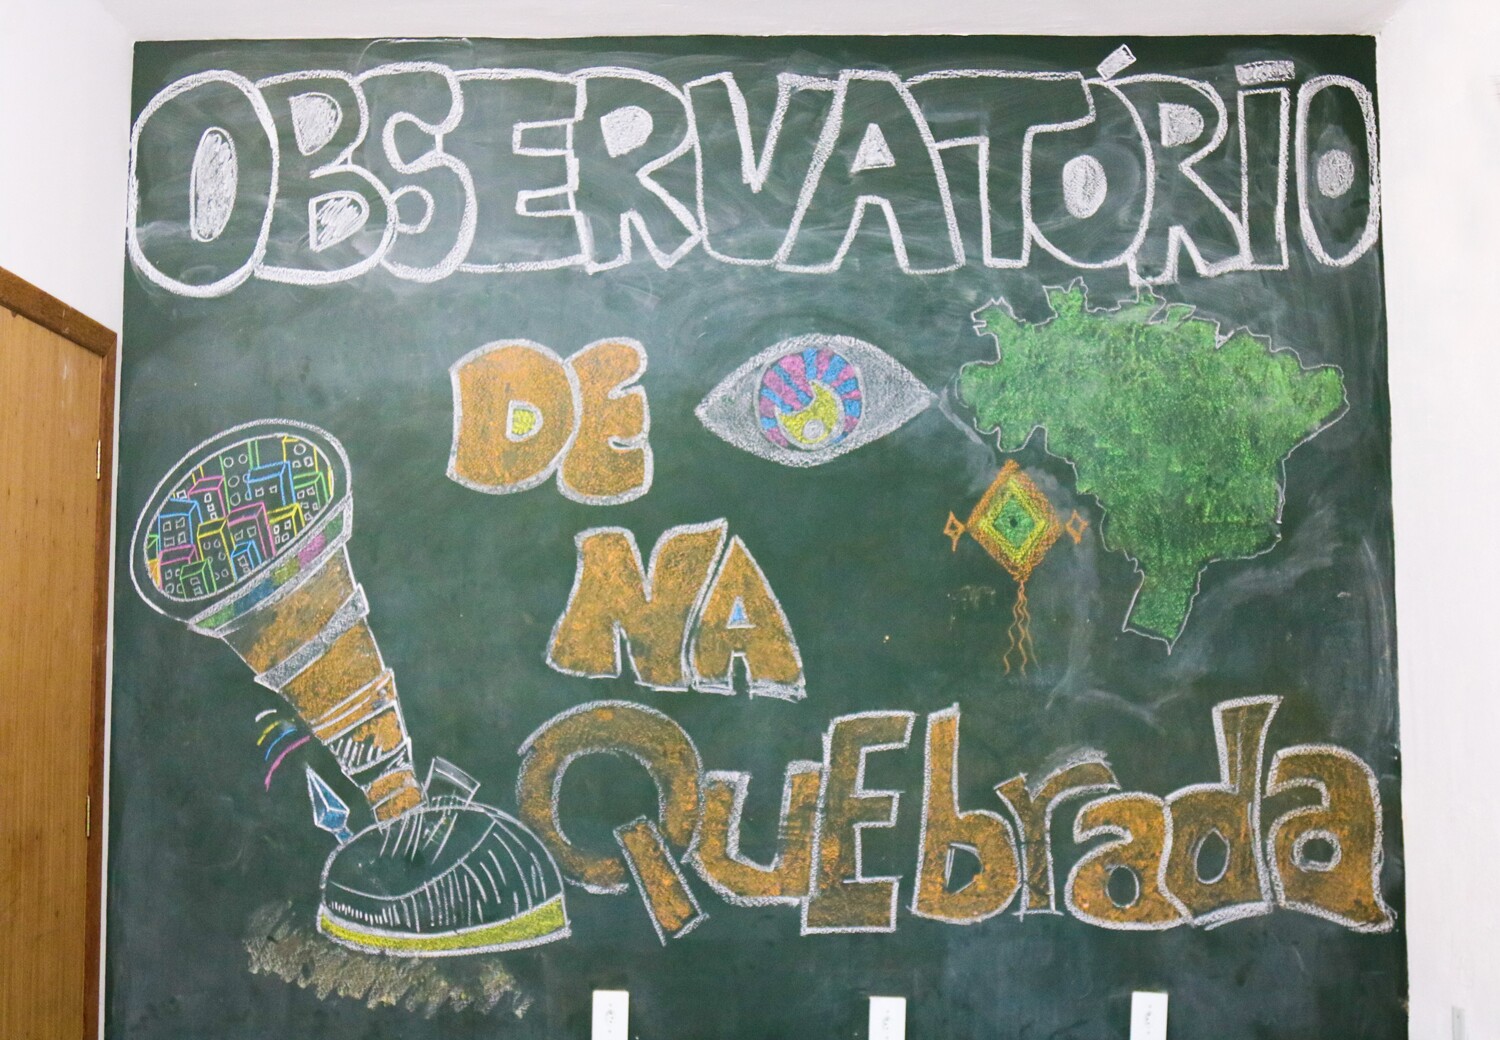 OBSERVATÓRIO
DE
NA
QUEbrada